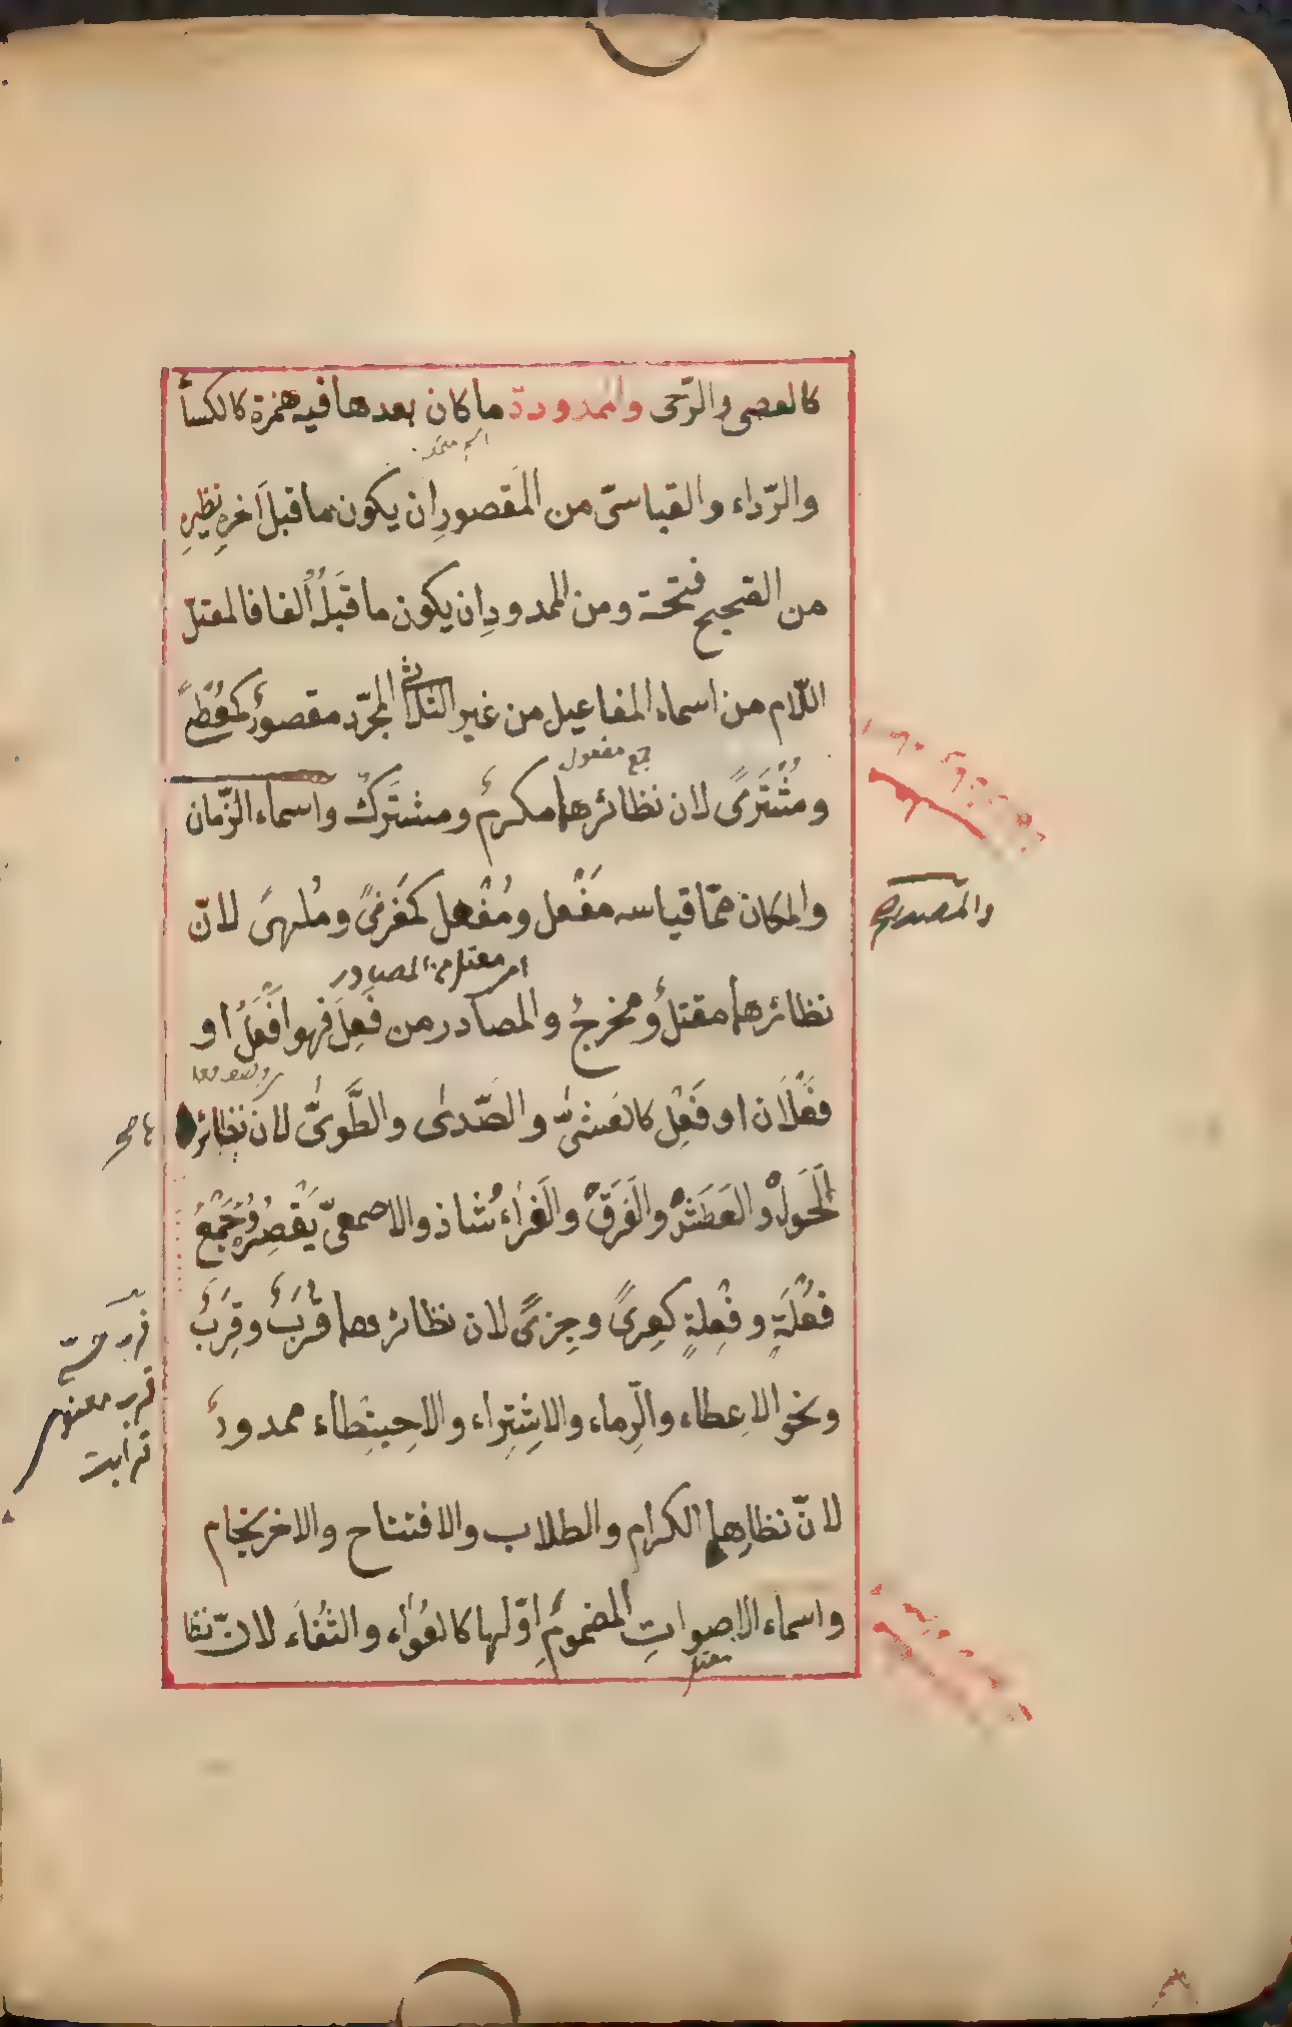 كالعصى والرّحى والممدودة ماكان بعدها فيه همزة كالكسأ
والرّداء والقياسىّ من المقصورِ ان يكون ما قبل اٰخرِ نظيرِه
من الصحيح فتحة ومن الممدودِ ان يكون ما قبلَهُ الفا فالمعتلّ
اللّام من اسماء المفاعيل من غير الثلاثى المجرّد مقصورٌ كمُعْطًى
جمع مفعول
ومُشْتَرًى لان نظائرهما مكرمٌ ومشتَركٌ واسماء الزّمان
والمكان ممّا قياسه مَفْعل ومُفْعل كمَغزىً ومُلهىً لانّ
والمصدر
نظائرهما مقتلٌ ومخرجٌ والمصادر من فَعِلَ فهو اَفْعَلُ او
معتل من المصادر
فَعْلَان او فَعِل كالعَشىّٰ والصَّدىٰ والطَّوىّٰ لان نظائر
ها صح
الَحَوَلُ والعَطَشُ والفَرَقُ والَغرَاءُ شاذ والاصمعىّ يَقْصِرُه وجَمْعُ
فُعْلَةٍ وفِعْلةٍ كعرىً وجِزىً لان نظائرهما قُرَبٌ وقِرَبٌ
ونحو الاعِطاء والرِّماء والاِشْتِراء والاحِبنِطاء ممدودٌ
لانّ نظايرها الكرام والطلاب والافتتاح والاخرنجام
واسماء الاصواتِ المضمومِ اوّلها كالعُوَاء والثُغاَء لانّ نظا
معتل